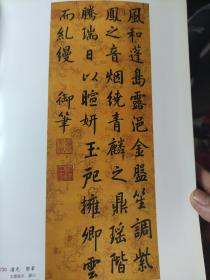 風和蓬島露浥金盤笙調紫
鳳之音烟繞青麟之鼎瑶階
騰瑞日以暄妍玉戺擁卿雲
而糺縵 御筆
730 道光